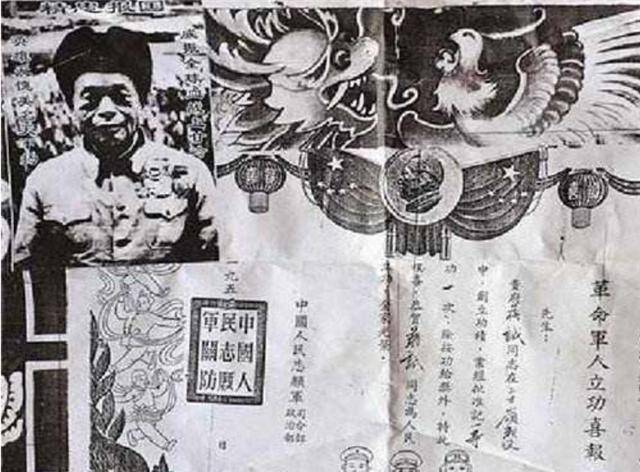 革命軍人立功喜報
先生：
貴府蔣誠同志在上甘嶺戰役
中，創立功績，業經批准記一等
功一次，除按功給獎外，特此
報喜，並賀蔣誠同志為人民
中國人民志願軍司令部政治部
一九五 日
中國人
民志願
軍關防